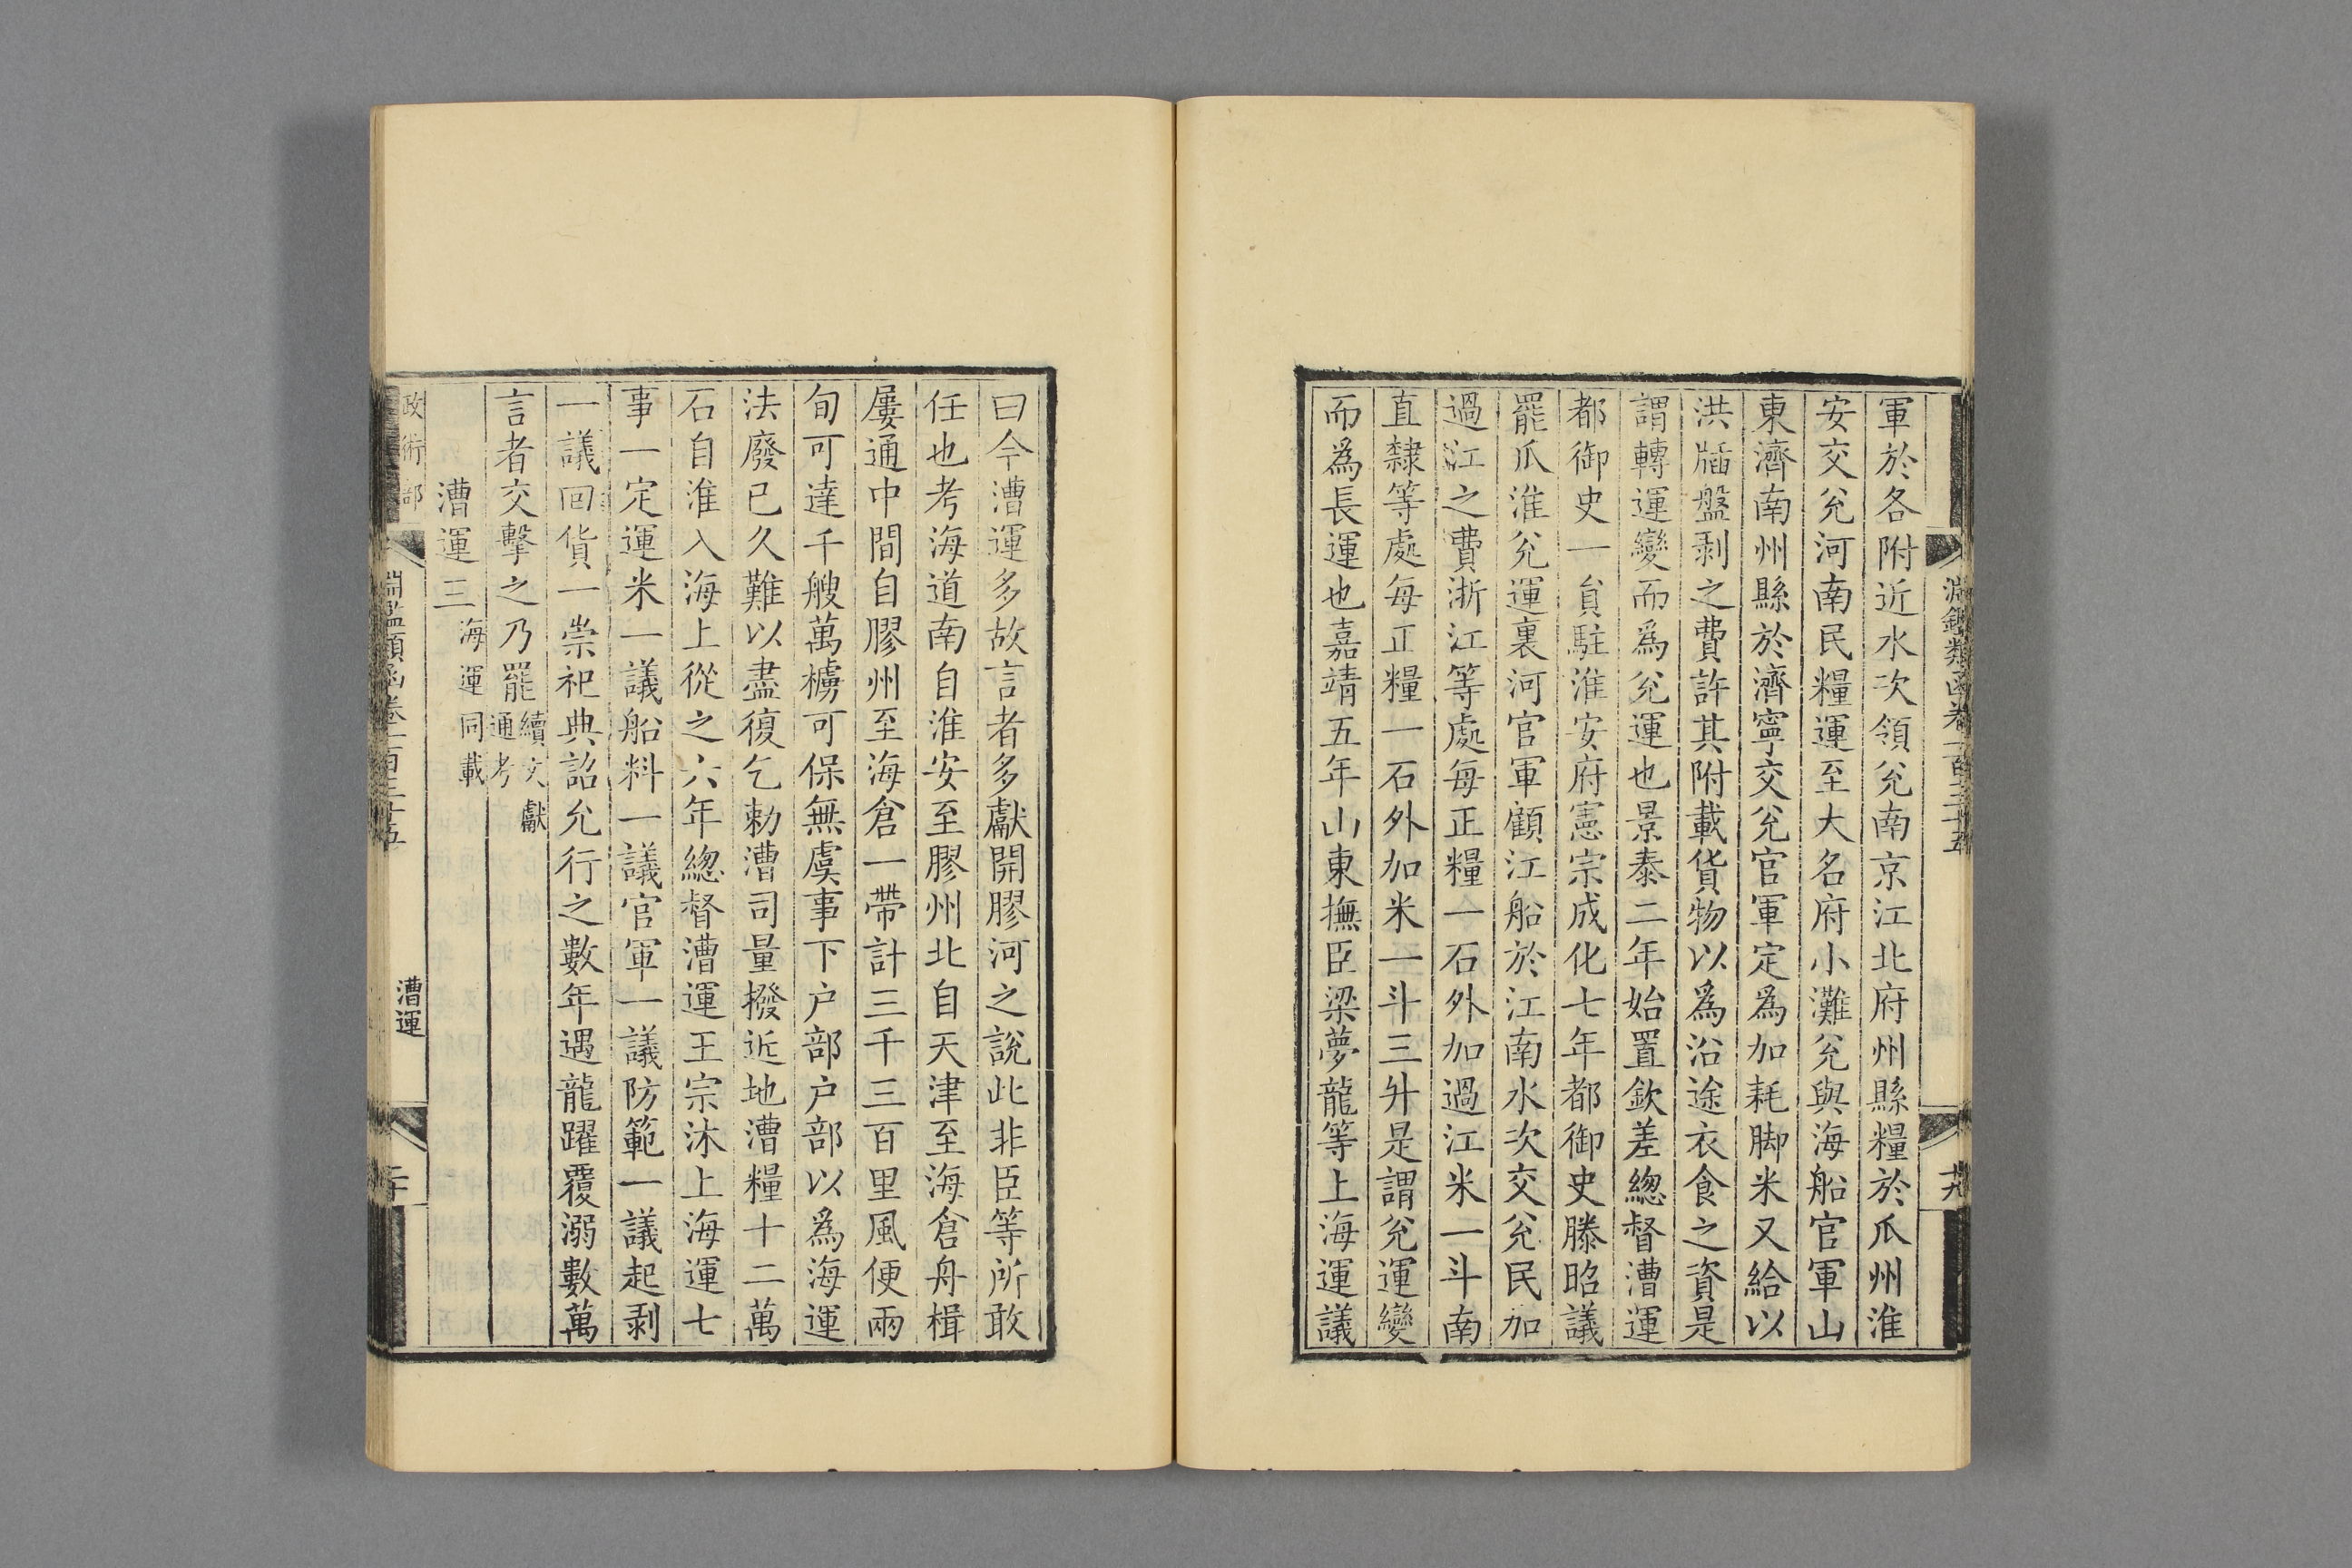 淵鑑類函卷一百三十五
十九
軍於各附近水次領兊南京江北府州縣糧於瓜州淮
安交兊河南民糧運至大名府小灘兊與海船官軍山
東濟南州縣於濟寧交兊官軍定為加耗脚米又給以
洪牐盤剥之費許其附載貨物以為沿途衣食之資是
謂轉運變而為兊運也景泰二年始置欽差總督漕運
都御史一貟駐淮安府憲宗成化七年都御史滕昭議
罷瓜淮兊運裏河官軍顧江船於江南水次交兊民加
過江之費浙江等處每正糧一石外加過江米一斗南
直隸等處每正糧一石外加米一斗三升是謂兊運變
而為長運也嘉靖五年山東撫臣梁夢龍等上海運議
曰今漕運多故言者多獻開膠河之說此非臣等所敢
任也考海道南自淮安至膠州北自天津至海倉舟楫
屢通中間自膠州至海倉一帶計三千三百里風便兩
旬可達千艘萬櫓可保無虞事下户部户部以為海運
法廢已久難以盡復乞勅漕司量撥近地漕糧十二萬
石自淮入海上從之六年總督漕運王宗沐上海運七
事一定運米一議船料一議官軍一議防範一議起剥
一議回貨一崇祀典詔允行之數年遇龍躍覆溺數萬
言者交擊之乃罷續文獻通考
漕運三海運同載
政術部
淵鑑類函卷一百三十五
漕運
二十